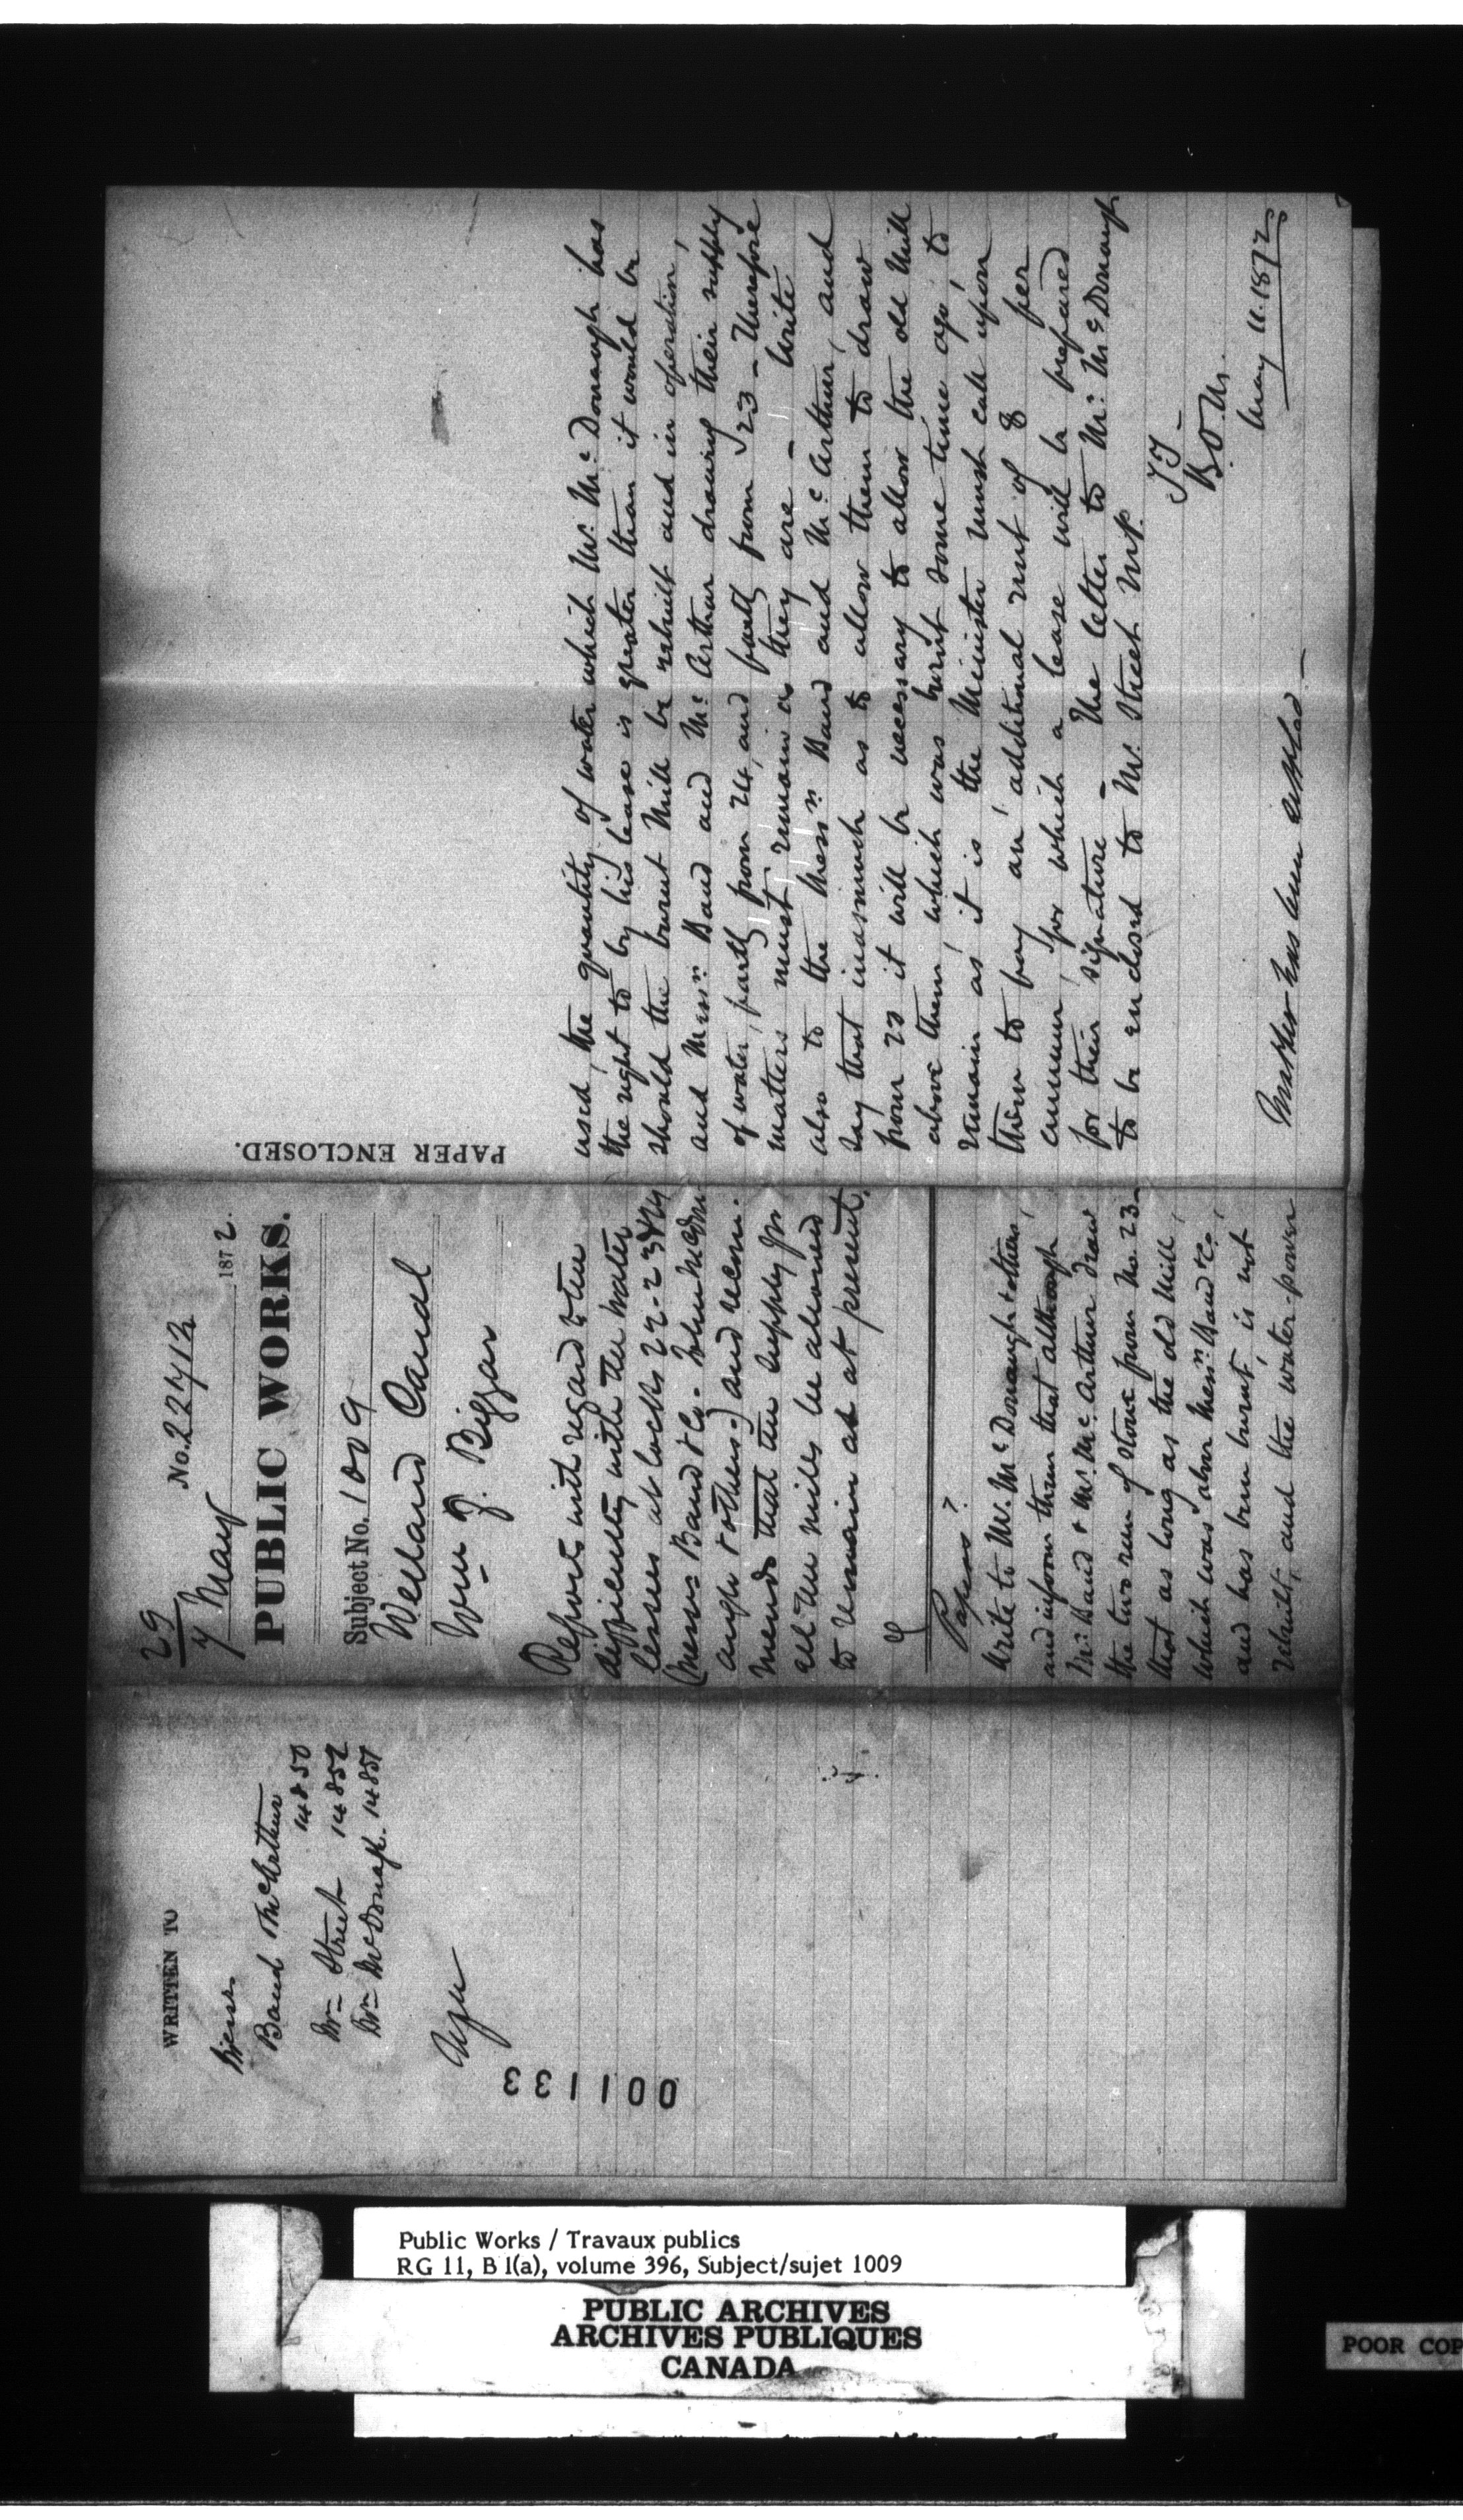 WRITTEN TO
Messrs
Band McArthur
14850
Mr Street 14852
Mr McDonagh 14851
001133
29
7 May 1872.
No. 22712
PUBLIC WORKS.
Subject No. 1009
Welland Canal
Wm J. Biggar
Reports with regard to the
difficulty with the water
lessees at locks 22-23 & 24
(Messrs Band & Co. John McDon-
augh & others.) and recom-
mends that the supply for
all the mills be allowed
to remain as at present.
Papers?
Write to Mr. McDonaugh & others,
and inform them that although
Mr. Band & Mr. McArthur draw
the two run of stone from No. 23 -
that as long as the old Mill,
which was above Messrs Band & Co,
and has been burnt, is not
rebuilt, and the water-power
PAPER ENCLOSED.
used, the quantity of water which Mr. McDonaugh has
the right to by his lease is greater than it would be
should the burnt Mill be rebuilt and in operation,
and Messrs Band and McArthur drawing their supply
of water, partly from 24, and partly from 23 - Therefore
matters must remain as they are - Write
also to the Messrs Band and McArthur, and
say that inasmuch as to allow them to draw
from 23 it will be necessary to allow the old Mill
above them, which was burnt some time ago, to
remain as it is the Minister must call upon
them to pay an additional rent of $ per
annum, for which a lease will be prepared
for their signature - The letter to Mr. McDonaugh
to be enclosed to Mr. Street M.P.
May 11. 1872
Matter has been settled -
Public Works / Travaux publics
RG 11, B 1(a), volume 396, Subject/sujet 1009
PUBLIC ARCHIVES
ARCHIVES PUBLIQUES
CANADA
POOR COP